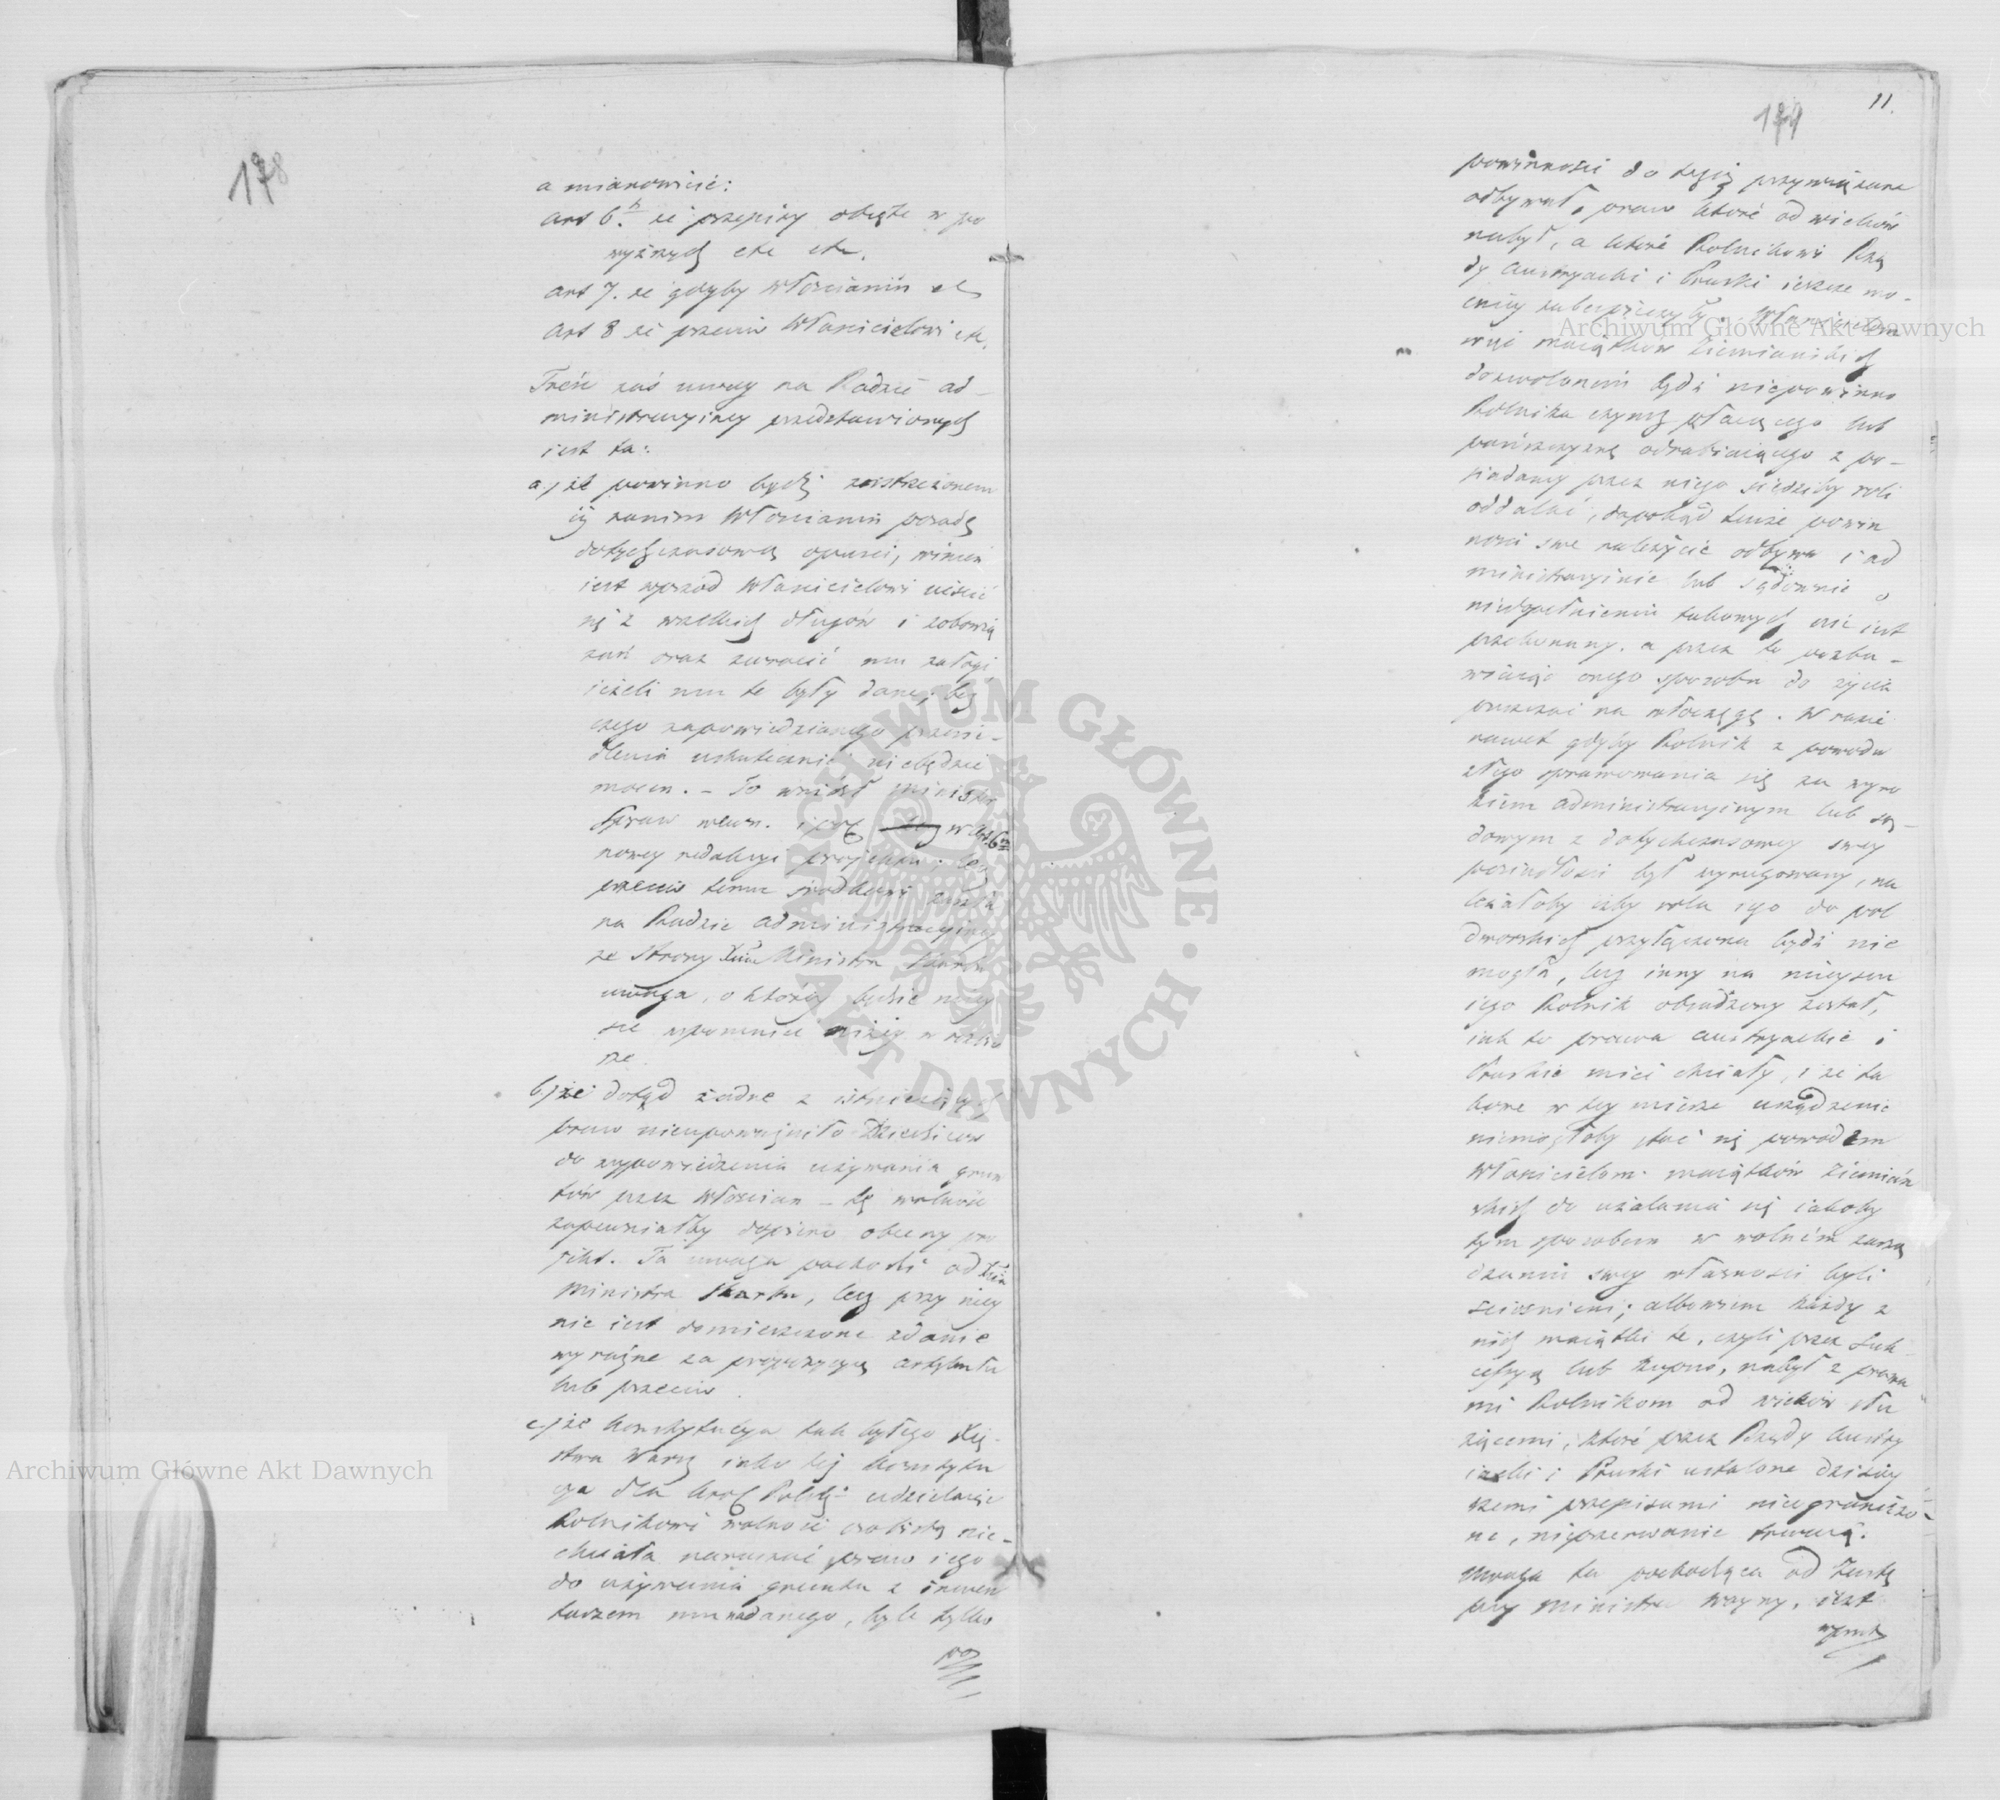 178
a mianowicie:
art 6. że przepisy objęte w po
wyższych etc etc.
art 7. że gdyby włościanin etc
art 8 że przeciw Właścicielowi etc.
Treść zaś uwag na Radzie ad-
ministracyiney przedstawionych
iest ta:
a./ że powinno bydź zastrzeżonem
iż zanim Włościanin posadę
dotychczasową opuści, winien
iest wprzód Właścicielowi uiścić
się z wszelkich długów i zobowią
zań oraz zwrócić mu załogi
ieżeli mu te były dane; bez
czego zapowiedzianego przesie-
dlenia uskutecznić niebędzie
mocen. – To wniósł Minister
Spraw wewn. i w Art. 6m
nowey redakcyi projektu; lecz
przeciw temu zaszła
na Radzie Administracyiney
ze strony Ministra Skarbu
uwaga, o którey będzie niżey
się wspomnieć niżey w
rze.
b./ że dotąd żadne z istnieiących
praw nieupoważniło Dziedziców
do wypowiedzenia używania grun
tów przez Włościan – tę wolność
zapewniałby dopiero obecny pro
jekt. Ta uwaga pochodzi od
Ministra Skarbu, lecz przy niey
nie iest domieszczone zdanie
wyraźne za propozycyą artykułu
lub przeciw.
c./ że konstytucya tak byłego Xię-
stwa Warsz iako też konstytu
cya dla Król Polsk: udzielaiąc
Rolnikowi wolność osobistą nie-
chciała naruszać praw iego
do używania gruntu z inwen
tarzem mu nadanego, byle tylko
po
179
11.
powinności do tegoż przywiązane
odbywał, praw które od wieków
nabył, a które Rolnikowi Rzą
dy Austryacki i Pruski ieszcze mo-
cniey zabezpieczyły. Właścicielom
więc maiątków Ziemiańskich
dozwolonem bydź niepowinno
Rolnika czynsz płacącego lub
pańszczyznę odrabiaiącego z po-
siadaney przez niego siedziby roli
oddalać, dopokąd tenże powin
ności swe należycie odbywa i ad
ministracyinie lub sądownie o
niedopełnienie takowych nie iest
przekonany, a przez to pozba-
wiaiąc onego sposobu do życia
puszczać na włóczęgę. W razie
nawet gdyby Rolnik z powodu
złego sprawowania się za wyro
kiem administracyinym lub są-
dowym z dotychczasowey swey
posiadłości był wyrugowany, na
leżałoby iżby rola iego do pól
dworskich przyłączona bydź nie
mogła, lecz inny na mieysce
iego Rolnik obsadzony został,
iak to prawa austryackie i
Pruskie mieć chciały, i że ta
kowe w tey mierze urządzenie
niemogłoby stać się powodem
Właścicielom maiątków Ziemiań
skich do użalania się iakoby
tym sposobem w wolném zarzą
dzaniu swey własności byli
ścieśnieni; albowiem każdy z
nich maiątki te, czyli przez Suk-
cessyą lub kupno, nabył z prawa
mi Rolnikom od wieków słu
żącemi, które przez Rządy Austry
iacki i Pruski ustalone dzisiey
szemi przepisami nieograniczo-
ne, nieprzerwanie trwaią.
Uwaga ta pochodząca od Zastę
pcy Ministra Woyny, iest
Archiwum Główne Akt Dawnych
Archiwum Główne Akt Dawnych
ARCHIWUM GŁÓWNE · AKT DAWNYCH ·